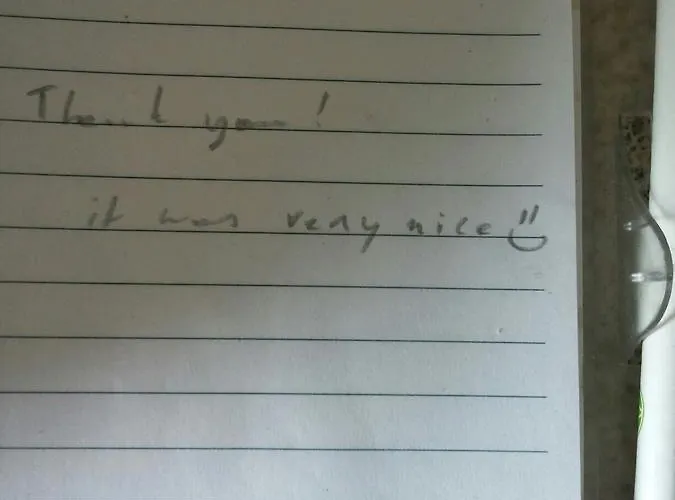 Thank you!
it was very nice